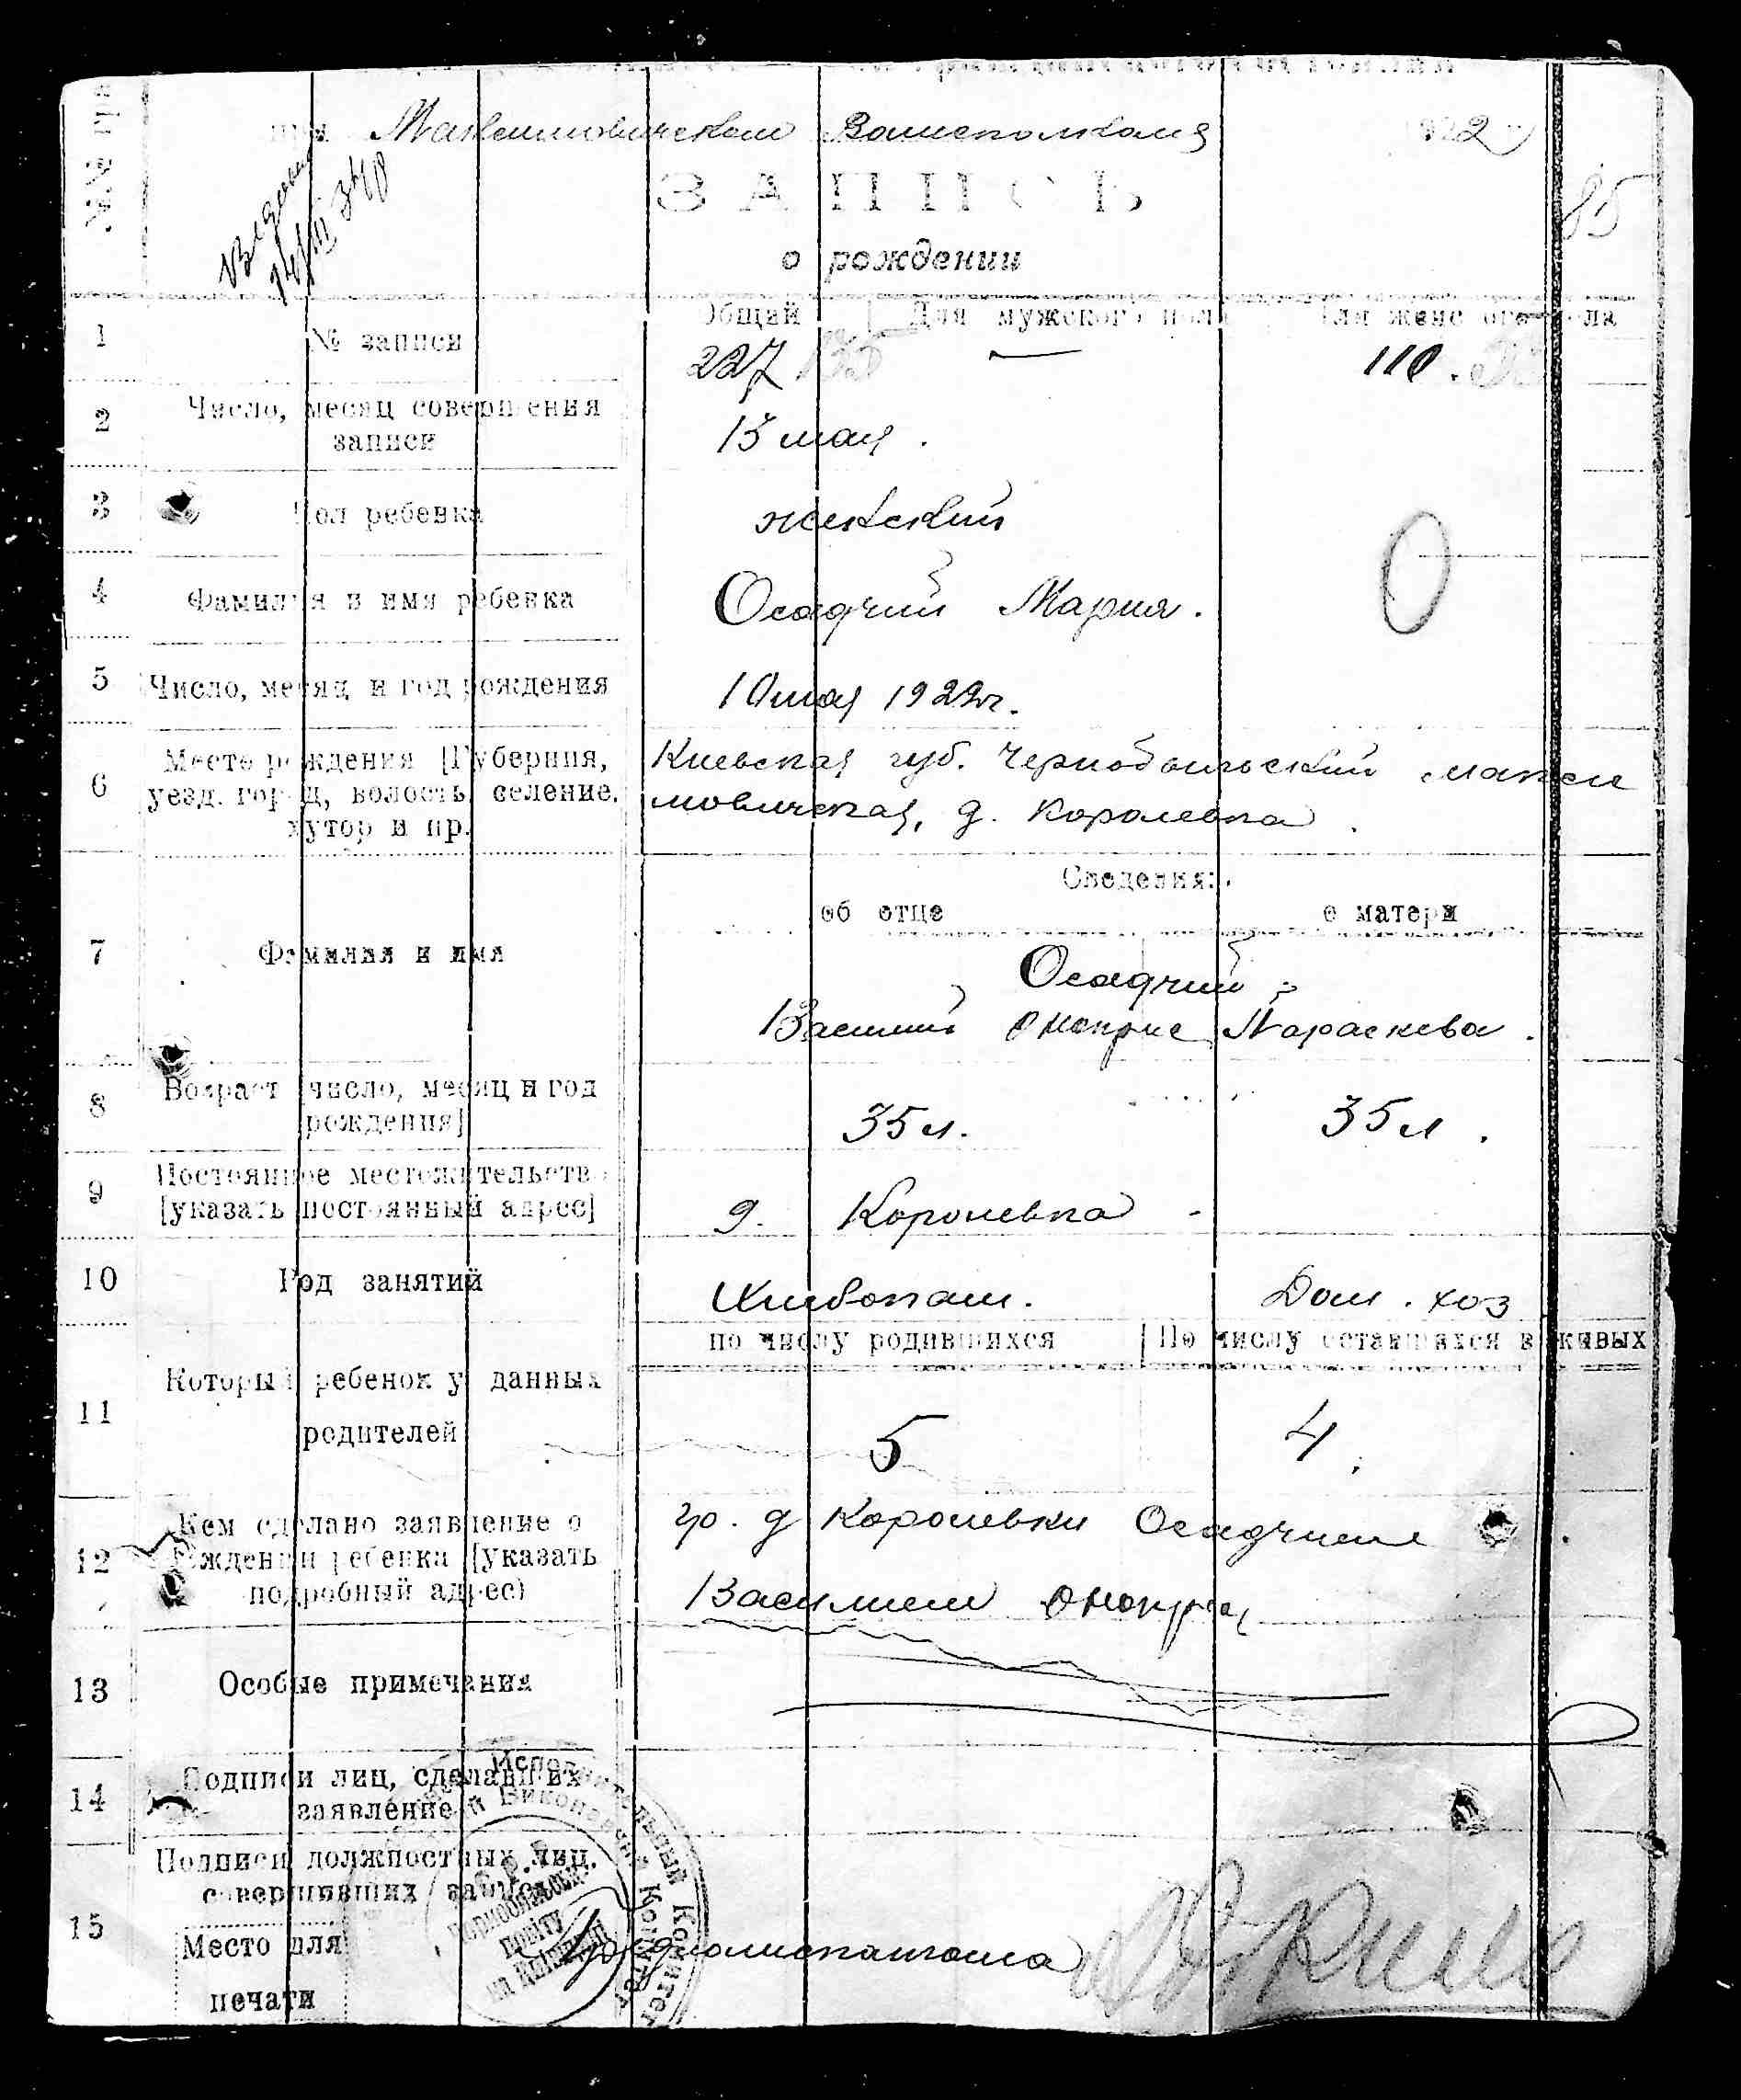 при Максимовическом Волисполкоме 1922
85
ЗАПИСЬ
о рождении
Общий Для мужского пола Для женского пола
1 № записи 227 — 110.
2 Число, месяц совершения
записи 13 мая.
3 Пол ребенка женский
4 Фамилия и имя ребенка Осадчий Мария.
5 Число, месяц и год рождения 10 мая 1922 г.
6 Место рождения [Губерния, Киевская губ. Чернобыльский Макси
уезд, город, волость, селение, мовическая, д. Королевка.
хутор и пр.
Сведения:
об отце о матери
7 Фамилия и имя Осадчий
Василий Оноприе Параскева.
8 Возраст [число, месяц и год
рождения] 35 л. 35 л.
9 Постоянное местожительство
[указать постоянный адрес] д. Королевка
10 Род занятий Хлебопаш. Дом. хоз
по числу родившихся По числу оставшихся в живых
11 Который ребенок у данных
родителей 5 4.
12 Кем сделано заявление о гр. д Королевки Осадчием
рождении ребенка [указать
подробный адрес) Василием Оноприя
13 Особые примечания
14 Подписи лиц, сделавших
заявление
15 Подписи должностных лиц,
совершивших запись
Место для
печати
Исполнительный Комитет
Виконавчий Комітет
Чорнобильськ.
повіту
на Київщині